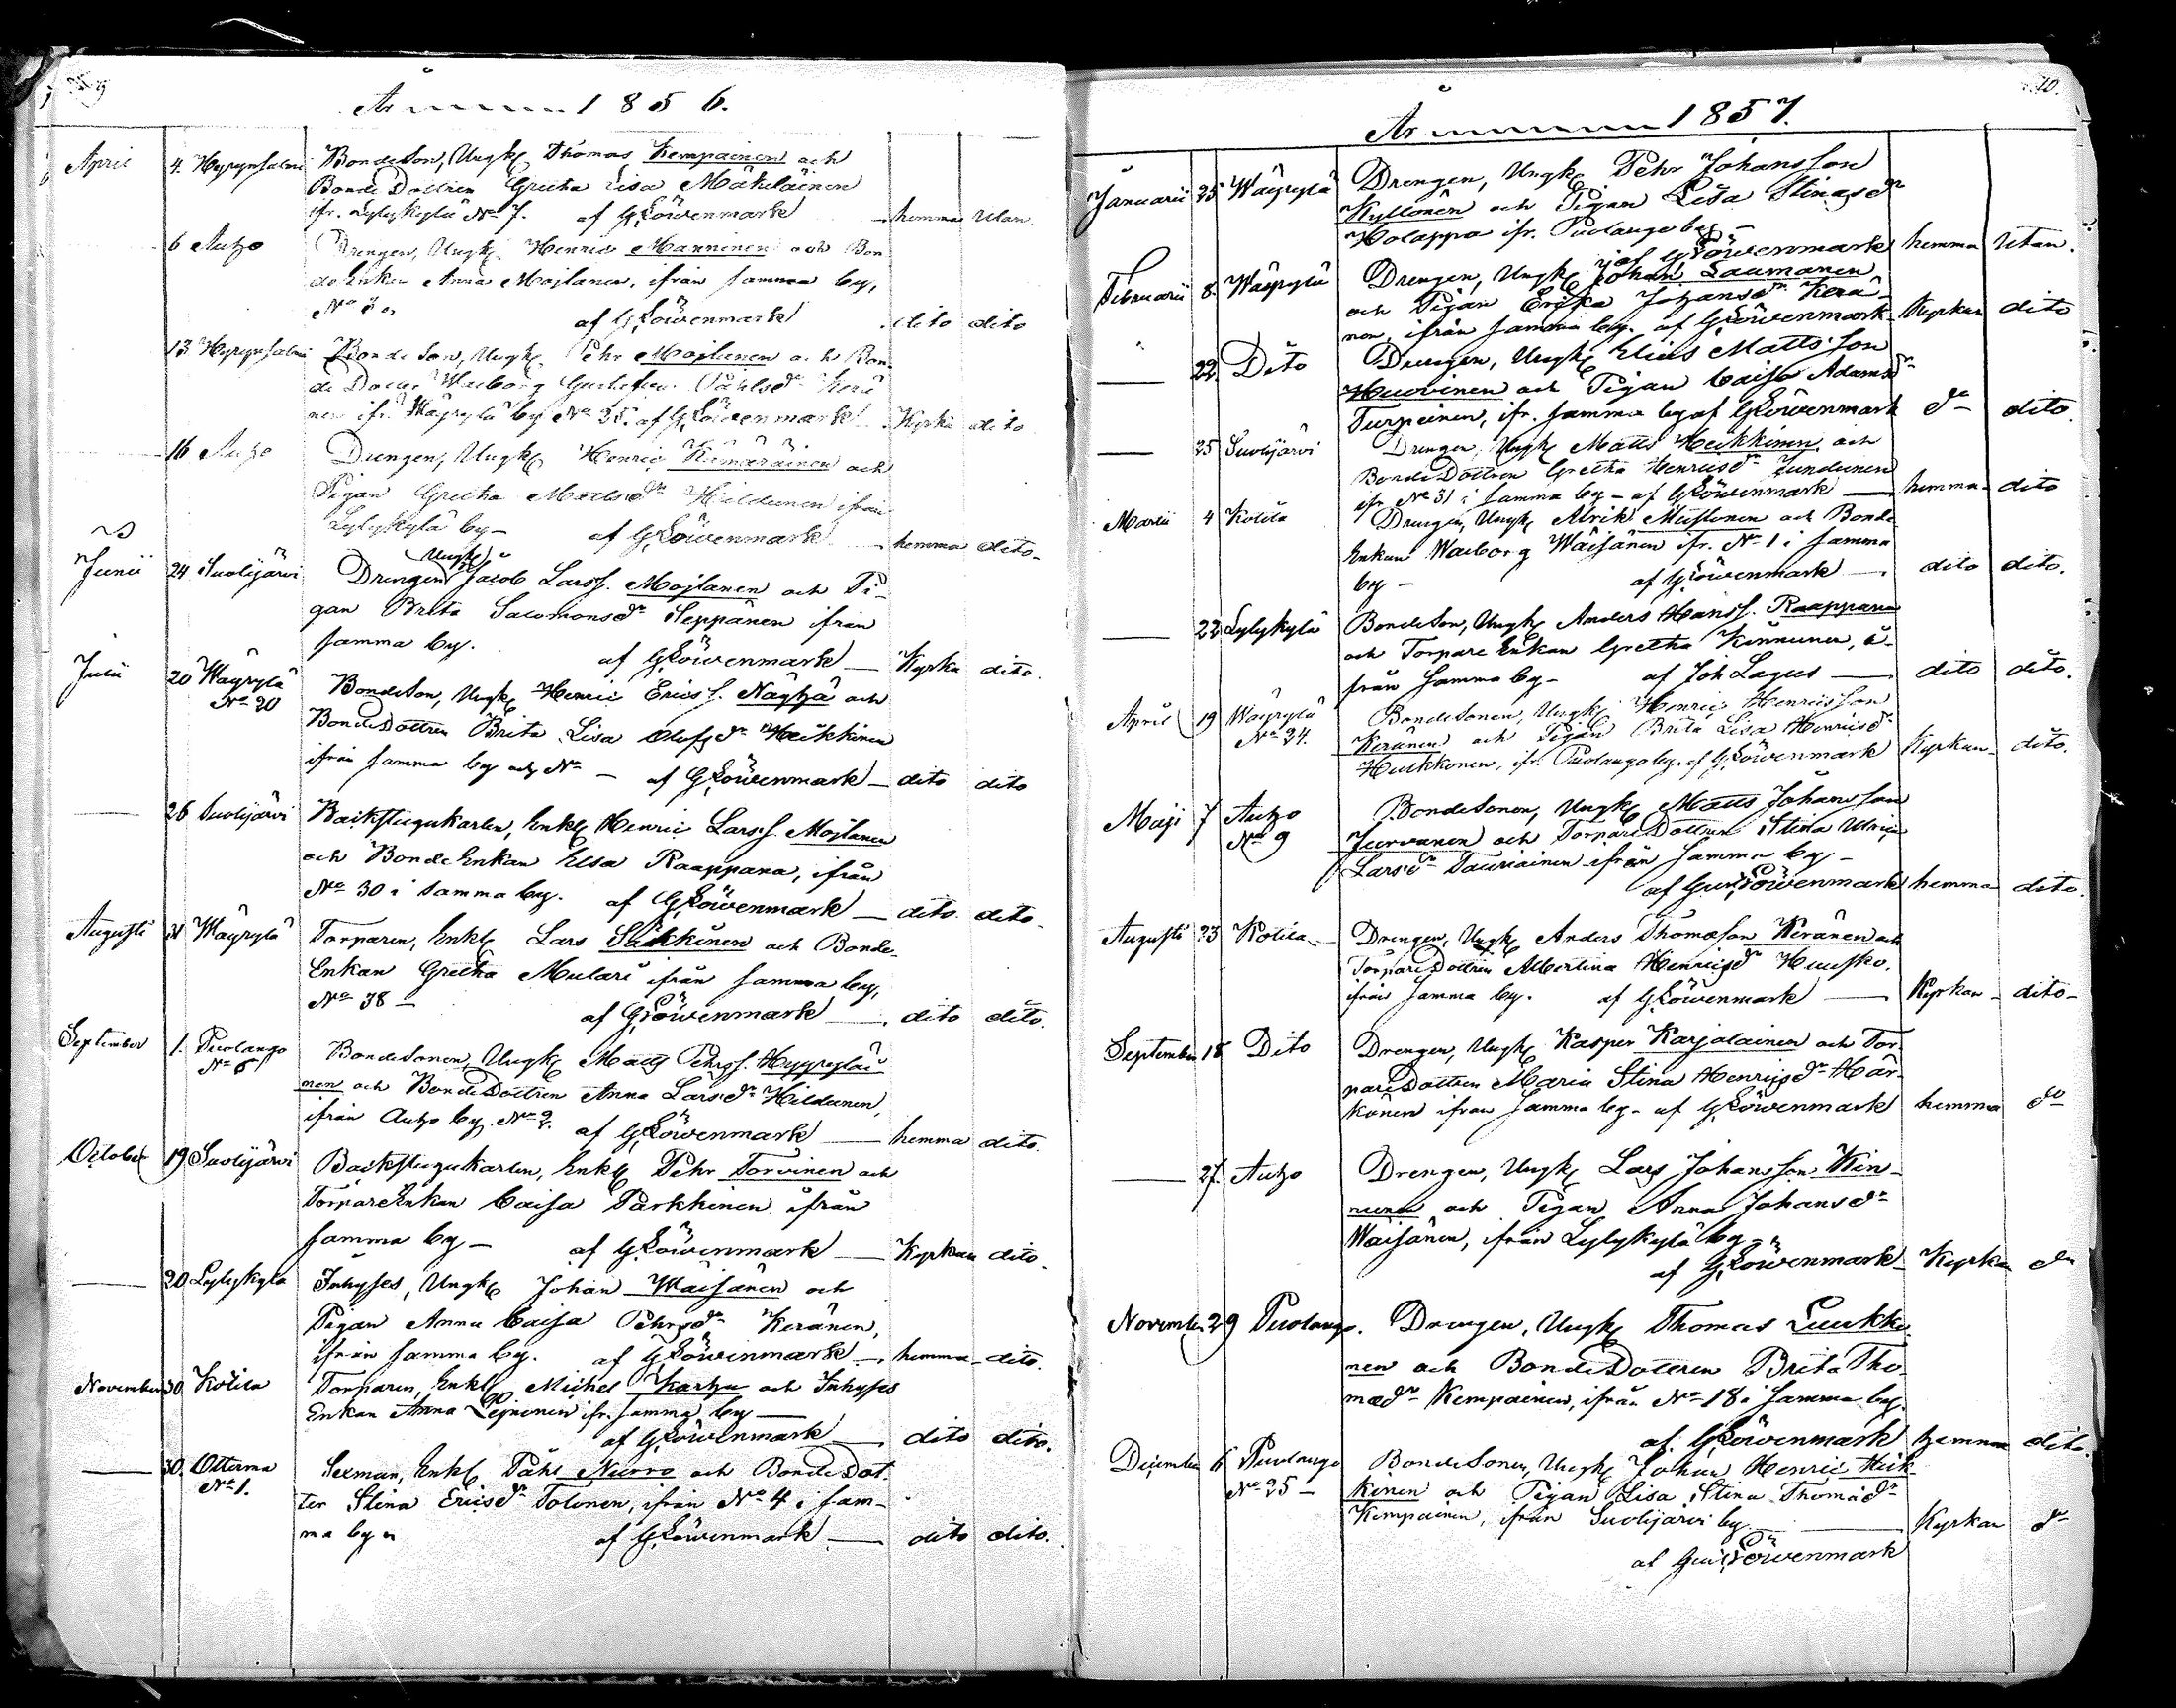 9
År 1856.
April 4. Hyrynsalmi BondeSon, Ungk. Thomas Kempainen och
Bonde Dottren Gretha Lisa Mäkeläinen
ifr. Lylykylä No 7. af G. Löwenmark — hemma utan.
6 Autzo Drengen, Ungk. Henric Manninen och Bon
de Enkan Anna Mojlanen, ifrån samma by,
No
af G. Löwenmark dito dito
13 Hyrynsalmi Bonde Son, Ungk. Pehr Mojlanen och Bon
de Dotter Walborg Påhlsdr Kerä
nen ifr. Wäyrylä by No 35. af G. Löwenmark Kyrka dito
16 Autzo Drengen, Ungk. Henric Kämäräinen och
Pigan Gretha Matsdr Hildunen ifrån
Lylykylä by — af G. Löwenmark — hemma dito-
Ungk.
Junii 24 Suolijärvi Drengen Jacob Larss. Mojlanen och Pi-
gan Brita Salomonsdr Seppänen ifrån
samma by. af G. Löwenmark — Kyrka dito.
Julii 20 Wäyrylä No 20 BondeSon, Ungk. Henric Erics S. Näyhä och
BondeDottren Brita Lisa Olofsdr Heikkinen
ifrån samma by och No — af G. Löwenmark — dito dito
— 26 Suolijärvi Backstugukarlen, Enkl. Henric Larss. Mojlanen
och Bonde Enkan Elsa Raappana, ifrån
No 30 i samma by. af G. Löwenmark — dito. dito.
Augusti 31 Wäyrylä Torparen, Enkl. Lars Säkkinen och Bonde-
Enkan Gretha Mulari ifrån samma by,
No 38 — af G. Löwenmark — dito dito.
September 1. Puolango No 6 BondeSonen, Ungk. Matts Pehrss. Hyyryläi
nen och BondeDottren Anna Larsdr Hildunen,
ifrån Autzo by. No 2. af G. Löwenmark — hemma dito.
October 19 Suolijärvi Backstugukarlen, Enkl. Pehr Torvinen och
TorpareEnkan Caisa Parkkinen ifrån
samma by — af G. Löwenmark — Kyrkan dito.
— 20 Lylykylä Inhyses, Ungk. Johan Wäisänen och
Pigan Anna Caisa Pehrsdr Keränen,
ifrån samma by. af G. Löwenmark — hemma dito.
November 30. Kotila Torparen, Enkl. Michel Karhu och Inhyses
Enkan Anna Leinonen ifr. samma by —
af G. Löwenmark — dito dito.
— 30. Otterma No 1. Sexman, Enkl. Påhl Nurro och BondeDot-
ter Stina Ericsdr Tolonen, ifrån No 4 i sam-
ma by af G. Löwenmark — dito dito.
10.
År 1857.
Januarii 25 Wäyrylä Drengen, Ungk. Pehr Johansson
Kyllönen och Pigan Lisa Stinasdr
Holappa ifr. Puolango by —
af G. Löwenmark hemma utan.
Februarii 8. Wäyrylä Drengen, Ungk. Johan Laumanen
och Pigan Erika Johansdr Kerä-
nen, ifrån samma by. af G. Löwenmark Kyrkan dito
— 22. Dito Drengen, Ungk. Elias Mattsson
Huovinen och Pigan Caisa Adamsdr
Turpeinen, ifr. samma by af G. Löwenmark do dito.
— 25 Suolijärvi Drengen, Ungk. Matts Heikkinen och
BondeDottren Gretha Henricsdr Jundunen
ifr. No 31 i samma by — af G. Löwenmark — hemma dito
Martii 4 Kotila Drengen, Ungk. Alrik Mustonen och Bonde
Enkan Walborg Wäisänen ifr. No 1 i samma
by — af G. Löwenmark — dito dito.
— 22 Lylykylä BondeSon, Ungk. Anders Hanss. Raappana
och Torpare Enkan Gretha Kinnunen, i-
från samma by — af Joh Lagus — dito dito.
April 19 Wäyrylä No 24. BondeSonen, Ungk. Henric Henricsson
Keränen och Pigan Brita Lisa Henricsdr
Huikkonen, ifr. Puolango by. af G. Löwenmark Kyrkan dito.
Maji 7 Autzo No 9 BondeSonen, Ungk. Matts Johansson
Jurvanen och TorpareDottren Stina Ulrica
Larsdr Tauriainen ifrån samma by —
af Gust. Löwenmark hemma dito.
Augusti 23 Kotila Drengen, Ungk. Anders Thomasson Keränen och
TorpareDottren Albertina Henricsdr Huusko.
ifrån samma by. af G. Löwenmark — Kyrkan dito-
September 18 Dito Drengen, Ungk. Kasper Karjalainen och Tor-
pareDottren Maria Stina Henricsdr Här-
könen ifrån samma by. af G. Löwenmark hemma do
— 27. Autzo Drengen, Ungk. Lars Johansson Kin-
nunen och Pigan Anna Johansdr
Wäisänen, ifrån Lylykylä by —
af G. Löwenmark Kyrkan do
November 29 Puolango. Drengen, Ungk. Thomas Luukko
nen och BondeDottren Brita Tho-
masdr Kempainen, ifrån No 18 i samma by.
af. G. Löwenmark hemma dito.
December 6 Puolango No 25 — BondeSonen, Ungk. Johan Henric Heik-
kinen och Pigan Lisa Stina Thomasdr
Kempainen, ifrån Suolijärvi by — Kyrkan do
af Gust. Löwenmark